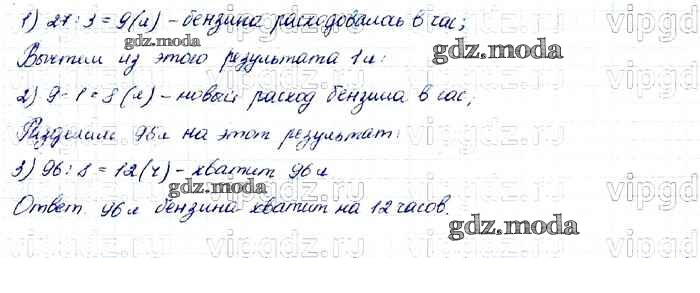 1) 27 : 3 = 9 (л) - бензина расходовалась в час;
Вычтем из этого результата 1 л:
2) 9 - 1 = 8 (л) - новый расход бензина в час;
Разделим 96 л на этот результат:
3) 96 : 8 = 12 (ч) - хватит 96 л
Ответ. 96 л бензина хватит на 12 часов.
gdz.moda
gdz.moda
gdz.moda
gdz.moda
vipgdz.ru